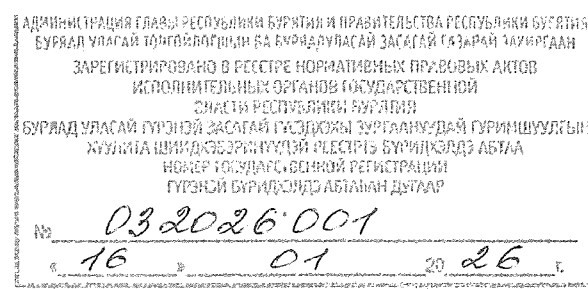 АДМИНИСТРАЦИЯ ГЛАВЫ РЕСПУБЛИКИ БУРЯТИЯ И ПРАВИТЕЛЬСТВА РЕСПУБЛИКИ БУРЯТИЯ
БУРЯАД УЛАСАЙ ТОЛГОЙЛОГШЫН БА БУРЯАД УЛАСАЙ ЗАСАГАЙ ГАЗАРАЙ ЗАХИРГААН
ЗАРЕГИСТРИРОВАНО В РЕЕСТРЕ НОРМАТИВНЫХ ПРАВОВЫХ АКТОВ
ИСПОЛНИТЕЛЬНЫХ ОРГАНОВ ГОСУДАРСТВЕННОЙ
ВЛАСТИ РЕСПУБЛИКИ БУРЯТИЯ
БУРЯАД УЛАСАЙ ГҮРЭНЭЙ ЗАСАГАЙ ГҮЙСЭДХЭХЫ ЗУРГААНУУДАЙ ГУРИМШУУЛҺАН
РЕЕСТРТЭ БҮРИДХЭЛДЭ АБТАА
НОМЕР ГОСУДАРСТВЕННОЙ РЕГИСТРАЦИИ
ГҮРЭНЭЙ БҮРИДХЭЛДЭ АБТАҺАН ДУГААР
№ 032026·001
« 16 » 01 20 26 г.